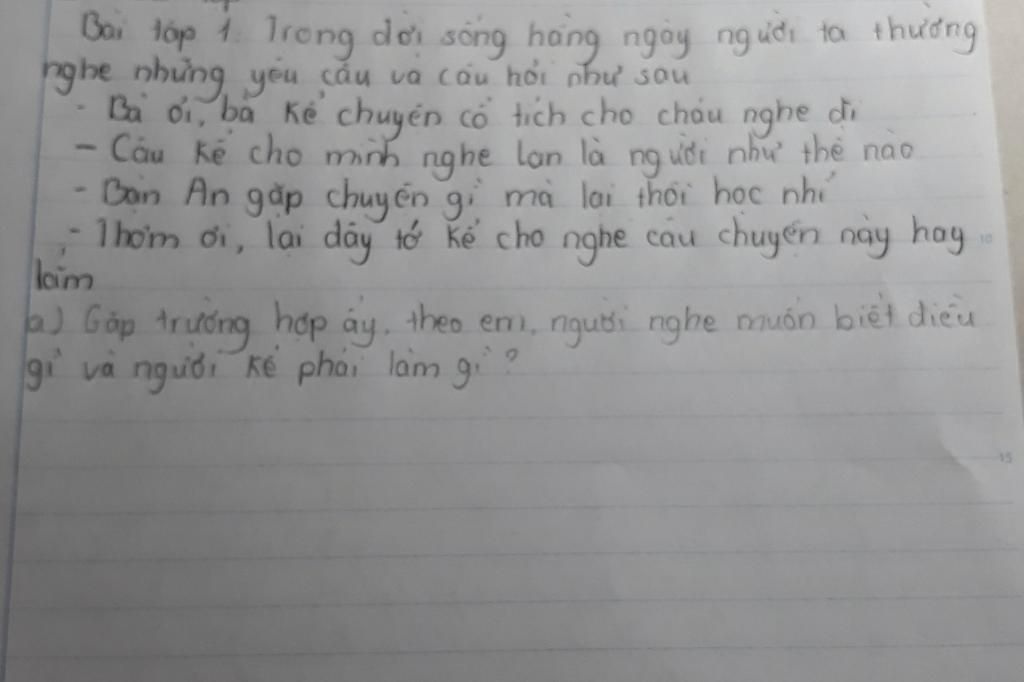 Bài tập 1. Trong đời sống hàng ngày người ta thường
nghe những yêu cầu và câu hỏi như sau
- Bà ơi, bà kể chuyện cổ tích cho cháu nghe đi
- Cậu kể cho mình nghe Lan là người như thế nào
- Bạn An gặp chuyện gì mà lại thôi học nhỉ
- Thơm ơi, lại đây tớ kể cho nghe câu chuyện này hay
lắm
a) Gặp trường hợp ấy, theo em, người nghe muốn biết điều
gì và người kể phải làm gì?
10
15